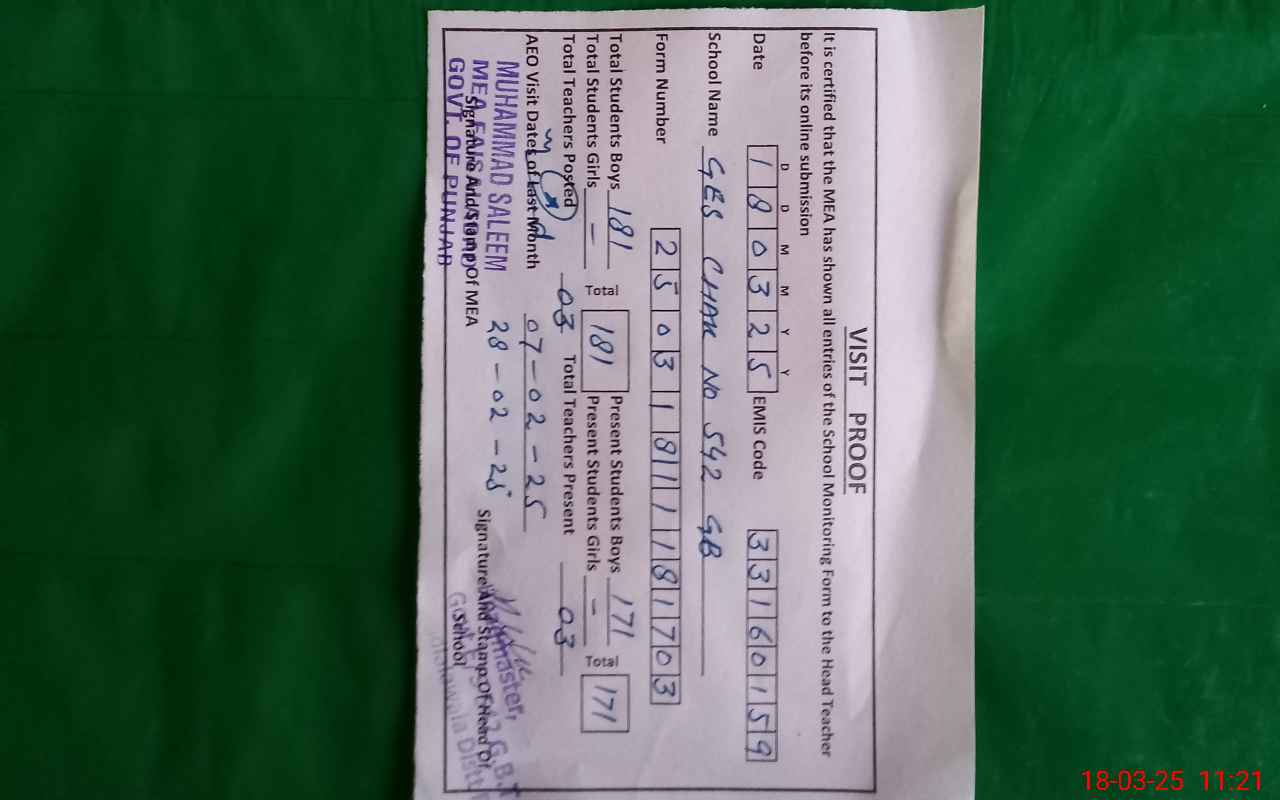 VISIT PROOF
It is certified that the MEA has shown all entries of the School Monitoring Form to the Head Teacher
before its online submission
D D M M Y Y
Date 1 8 0 3 2 5 EMIS Code 3 3 1 6 0 1 5 9
School Name GES CHAK No 542 GB
Form Number 2 5 0 3 1 8 1 1 1 8 1 7 0 3
Total Students Boys 181 Total 181 Present Students Boys 171 Total 171
Total Students Girls – Present Students Girls –
Total Teachers Posted 03 Total Teachers Present 03
AEO Visit Dates of Last Month 07-02-25
28-02-25
MUHAMMAD SALEEM
MEA
GOVT. OF PUNJAB
Signature And Stamp Of MEA
Signature And Stamp Of Head Of
School
Headmaster,
18-03-25 11:21